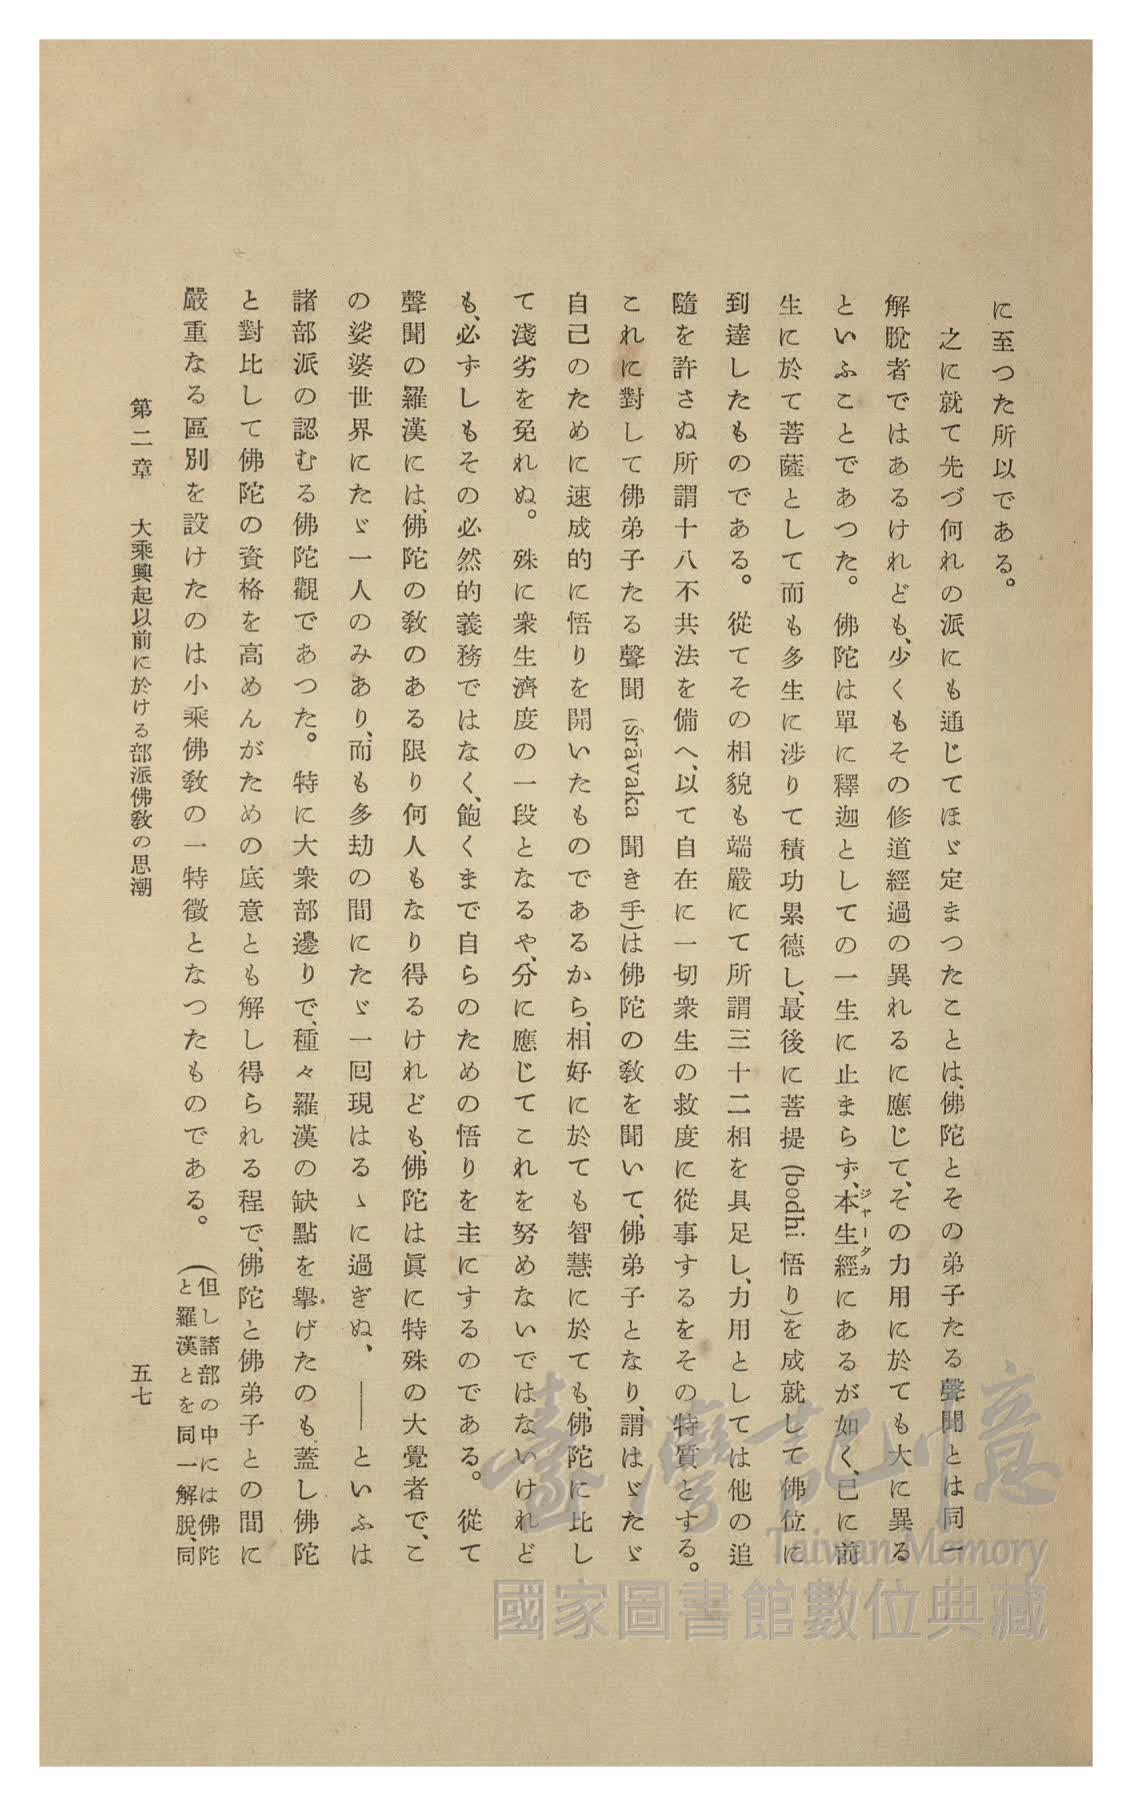 に至つた所以である。
之に就て先づ何れの派にも通じてほゞ定まつたことは、佛陀とその弟子たる聲聞とは同一
解脫者ではあるけれども、少くもその修道經過の異れるに應じて、その力用に於ても大に異る
といふことであつた。佛陀は單に釋迦としての一生に止まらず、本生經にあるが如く、已に前
ジヤータカ
生に於て菩薩として而も多生に涉りて積功累德し、最後に菩提 (bodhi 悟り)を成就して佛位に
到達したものである。從てその相貌も端嚴にて所謂三十二相を具足し、力用としては他の追
隨を許さぬ所謂十八不共法を備へ、以て自在に一切衆生の救度に從事するをその特質とする。
これに對して佛弟子たる聲聞 (śrāvaka 聞き手)は佛陀の敎を聞いて、佛弟子となり、謂はゞたゞ
自己のために速成的に悟りを開いたものであるから、相好に於ても智慧に於ても、佛陀に比し
て淺劣を免れぬ。殊に衆生濟度の一段となるや、分に應じてこれを努めないではないけれど
も、必ずしもその必然的義務ではなく、飽くまで自らのための悟りを主にするのである。從て
聲聞の羅漢には、佛陀の敎のある限り何人もなり得るけれども、佛陀は眞に特殊の大覺者で、こ
の娑婆世界にたゞ一人のみあり、而も多劫の間にたゞ一回現はるゝに過ぎぬ、――といふは
諸部派の認むる佛陀觀であつた。特に大衆部邊りで、種々羅漢の缺點を擧げたのも、蓋し佛陀
と對比して佛陀の資格を高めんがための底意とも解し得られる程で、佛陀と佛弟子との間に
嚴重なる區別を設けたのは小乘佛敎の一特徵となつたものである。
(但し諸部の中には佛陀
と羅漢とを同一解脫、同
第二章 大乘興起以前に於ける部派佛敎の思潮 五七
臺灣記憶
Taiwan Memory
國家圖書館數位典藏